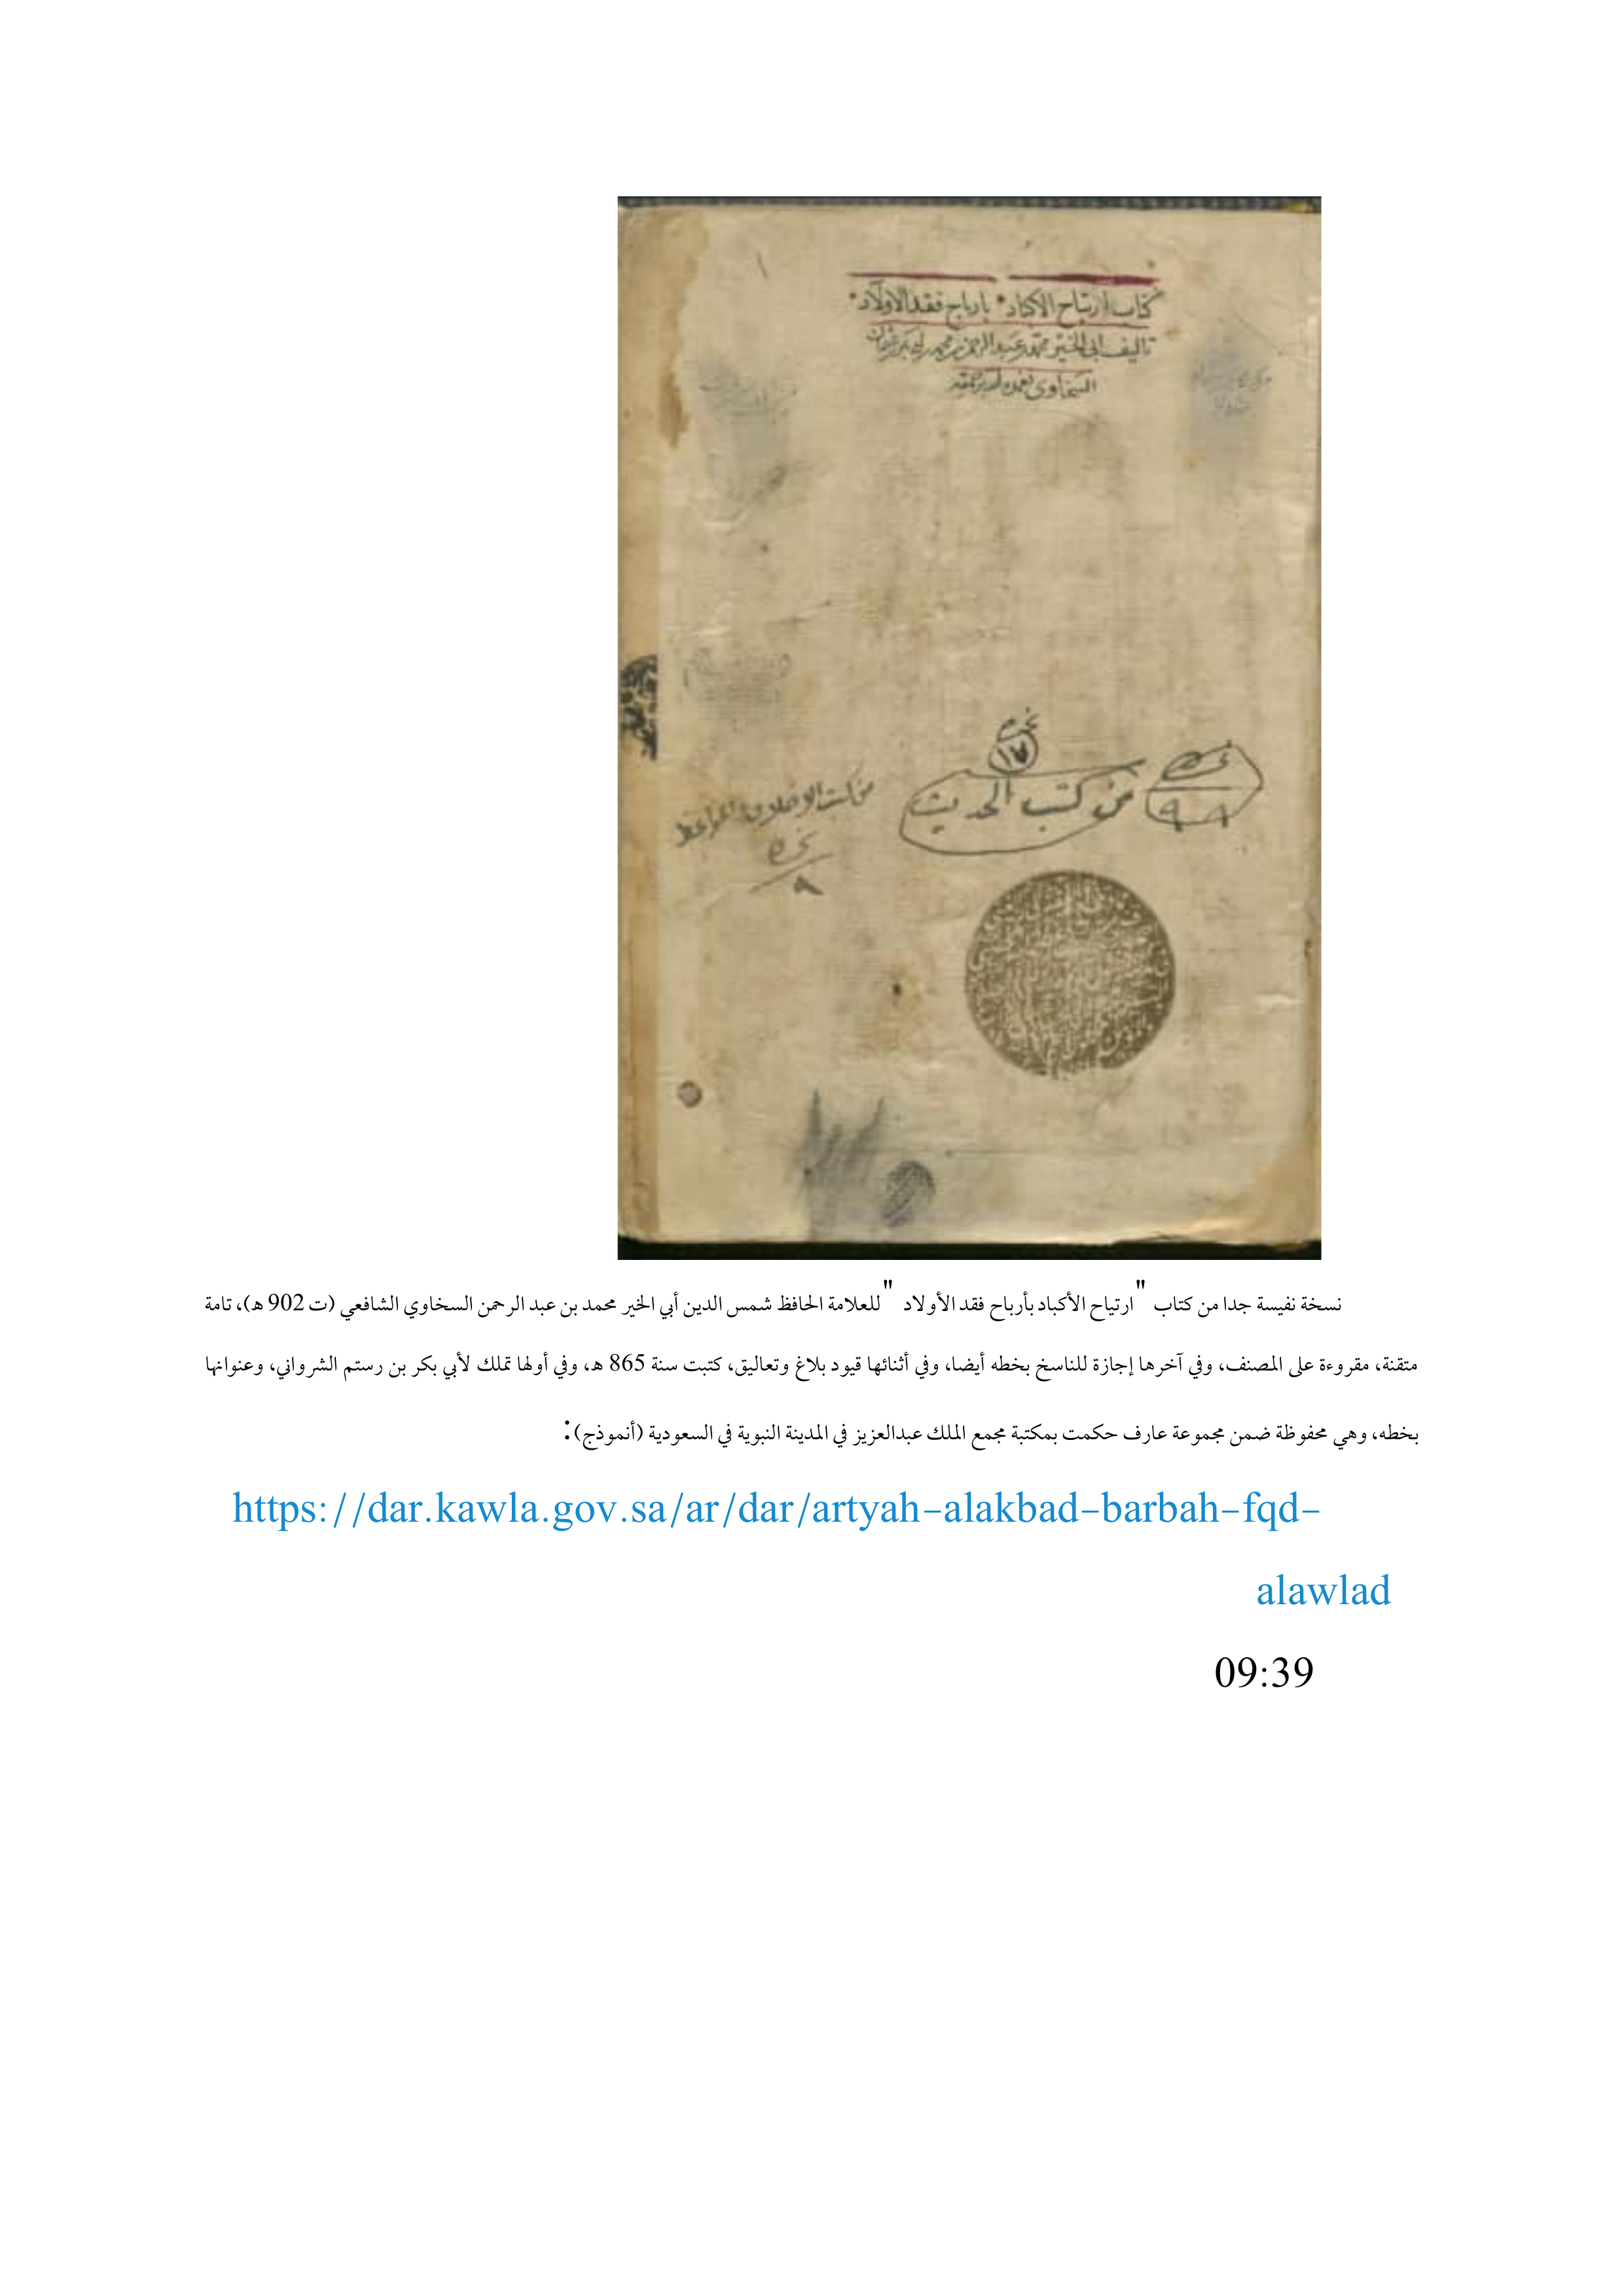 كتاب ارتياح الاكباد بارباح فقد الاولاد
تاليف ابى الخير محمد عبد الرحمن محمد ابى بكر عثمان
السخاوى
نمره
١٧
من كتب الحديث
نمره
٩٨
من كتب الاخلاق والمواعظ
نمره
٨
نسخة نفيسة جدا من كتاب "ارتياح الأكباد بأرباح فقد الأولاد "للعلامة الحافظ شمس الدين أبي الخير محمد بن عبد الرحمن السخاوي الشافعي (ت 902 ه)، تامة
متقنة، مقروءة على المصنف، وفي آخرها إجازة للناسخ بخطه أيضا، وفي أثنائها قيود بلاغ وتعاليق، كتبت سنة 865 ه، وفي أولها تملك لأبي بكر بن رستم الشرواني، وعنوانها
بخطه، وهي محفوظة ضمن مجموعة عارف حكمت بمكتبة مجمع الملك عبدالعزيز في المدينة النبوية في السعودية (أنموذج):
https://dar.kawla.gov.sa/ar/dar/artyah-alakbad-barbah-fqd-
alawlad
09:39